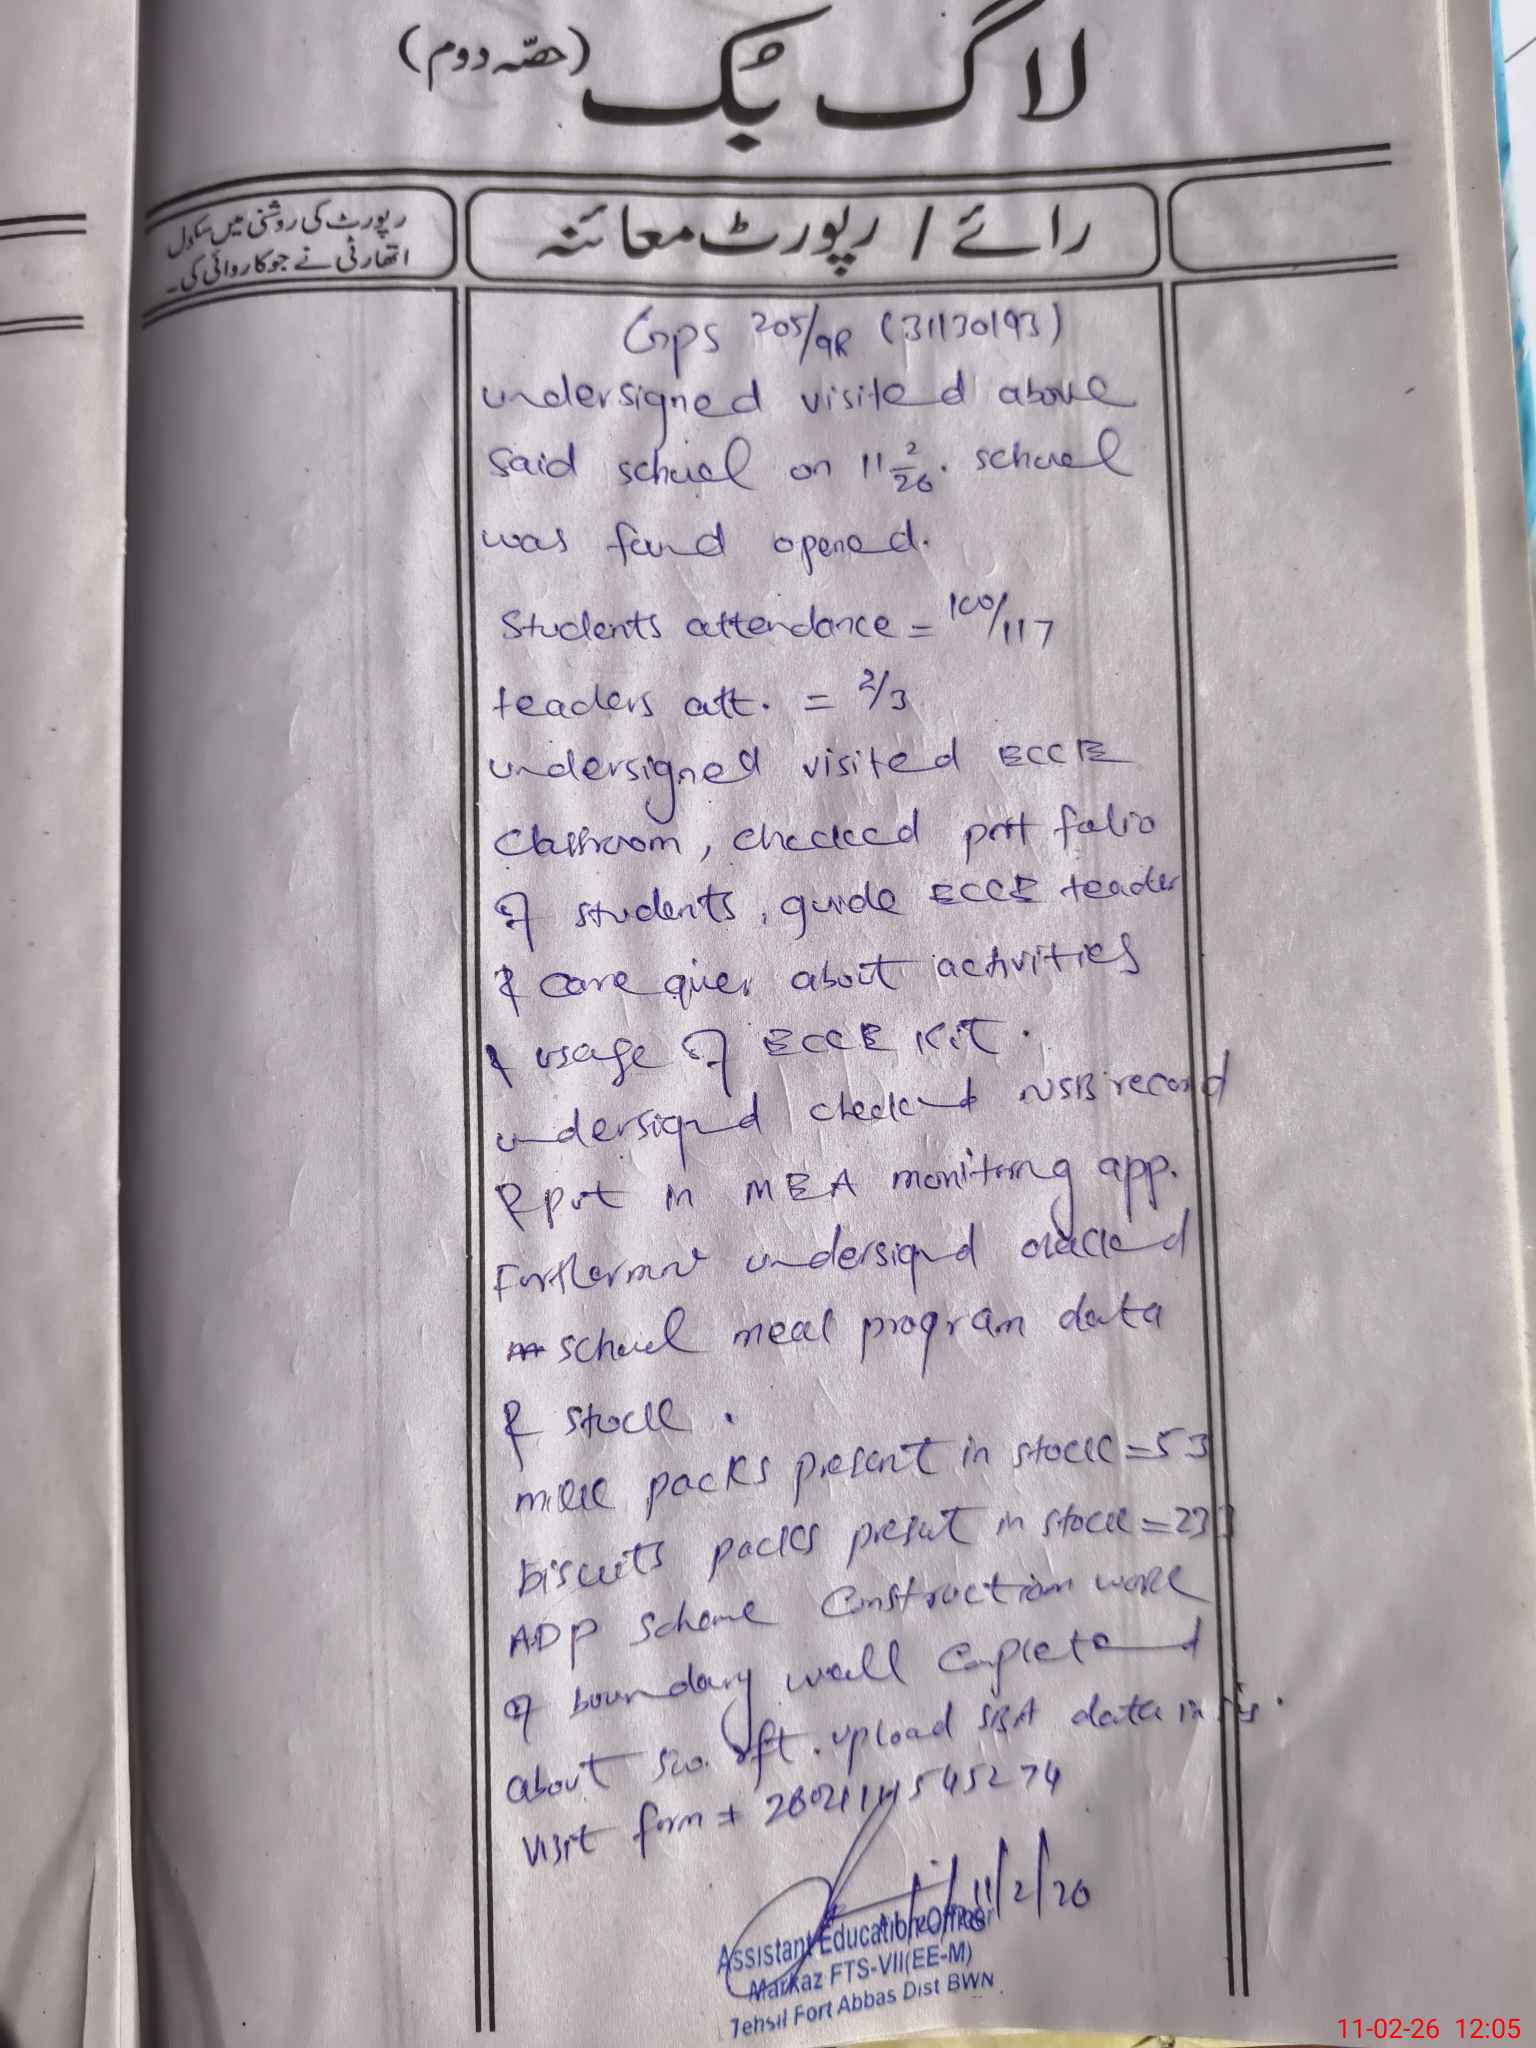 لاگ بُک (حصّہ دوم)
رائے / رپورٹ معائنہ
رپورٹ کی روشنی میں سکول
اتھارٹی نے جو کاروائی کی۔
GPS 205/9R (31130193)
undersigned visited above
said school on 11 2/26. school
was found opened.
Students attendance = 100/117
teachers att. = 2/3
undersigned visited ECCE
Classroom, checked port folio
of students, guide ECCE teacher
& care giver about activities
& usage of ECCE Kit.
undersigned checked NSB record
& put in MEA monitoring app.
Furthermore undersigned checked
school meal program data
& stock.
milk packs present in stock = 53
biscuits packs present in stock = 233
ADP scheme Construction work
of boundary wall Completed
about rft. upload SBA data in sis.
visit form # 26021111545274
11/2/26
Assistant Education Officer
Markaz FTS-VII(EE-M)
Tehsil Fort Abbas Dist BWN
11-02-26 12:05